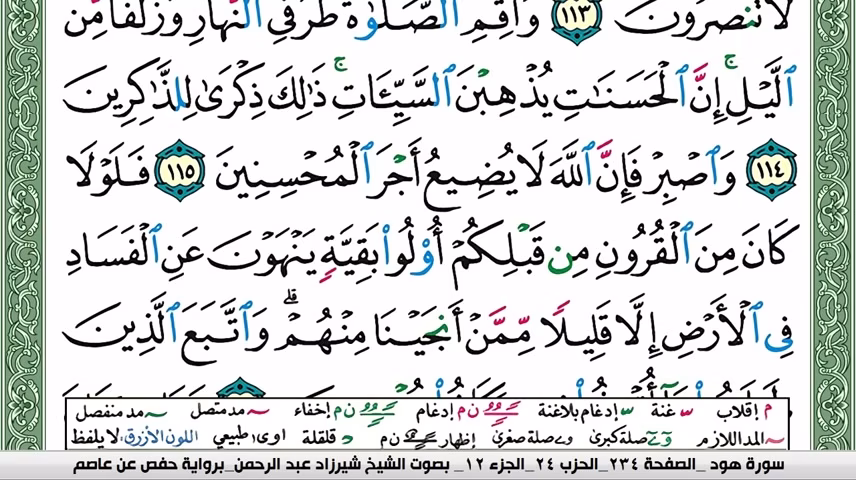 لَا تُنصَرُونَ ١١٣ وَأَقِمِ الصَّلَوٰةَ طَرَفَيِ النَّهَارِ وَزُلَفًا مِّنَ
ٱلَّيْلِ ۚ إِنَّ ٱلْحَسَنَٰتِ يُذْهِبْنَ ٱلسَّيِّـَٔاتِ ۚ ذَٰلِكَ ذِكْرَىٰ لِلذَّٰكِرِينَ
١١٤ وَٱصْبِرْ فَإِنَّ ٱللَّهَ لَا يُضِيعُ أَجْرَ ٱلْمُحْسِنِينَ ١١٥ فَلَوْلَا
كَانَ مِنَ ٱلْقُرُونِ مِن قَبْلِكُمْ أُو۟لُوا۟ بَقِيَّةٍ يَنْهَوْنَ عَنِ ٱلْفَسَادِ
فِى ٱلْأَرْضِ إِلَّا قَلِيلًا مِّمَّنْ أَنجَيْنَا مِنْهُمْ ۗ وَٱتَّبَعَ ٱلَّذِينَ
م إقلاب ـس غنة ـس إدغام بلاغنة ن م إدغام ن م إخفاء ـ مد متصل ـ مد منفصل
ـ المد اللازم صلة كبرى صلة صغرى إظهار ن م قلقلة اوى طبيعي اللون الأزرق: لا يلفظ
سورة هود _الصفحة ٢٣٤_الحزب ٢٤_الجزء ١٢_ بصوت الشيخ شيرزاد عبد الرحمن_برواية حفص عن عاصم